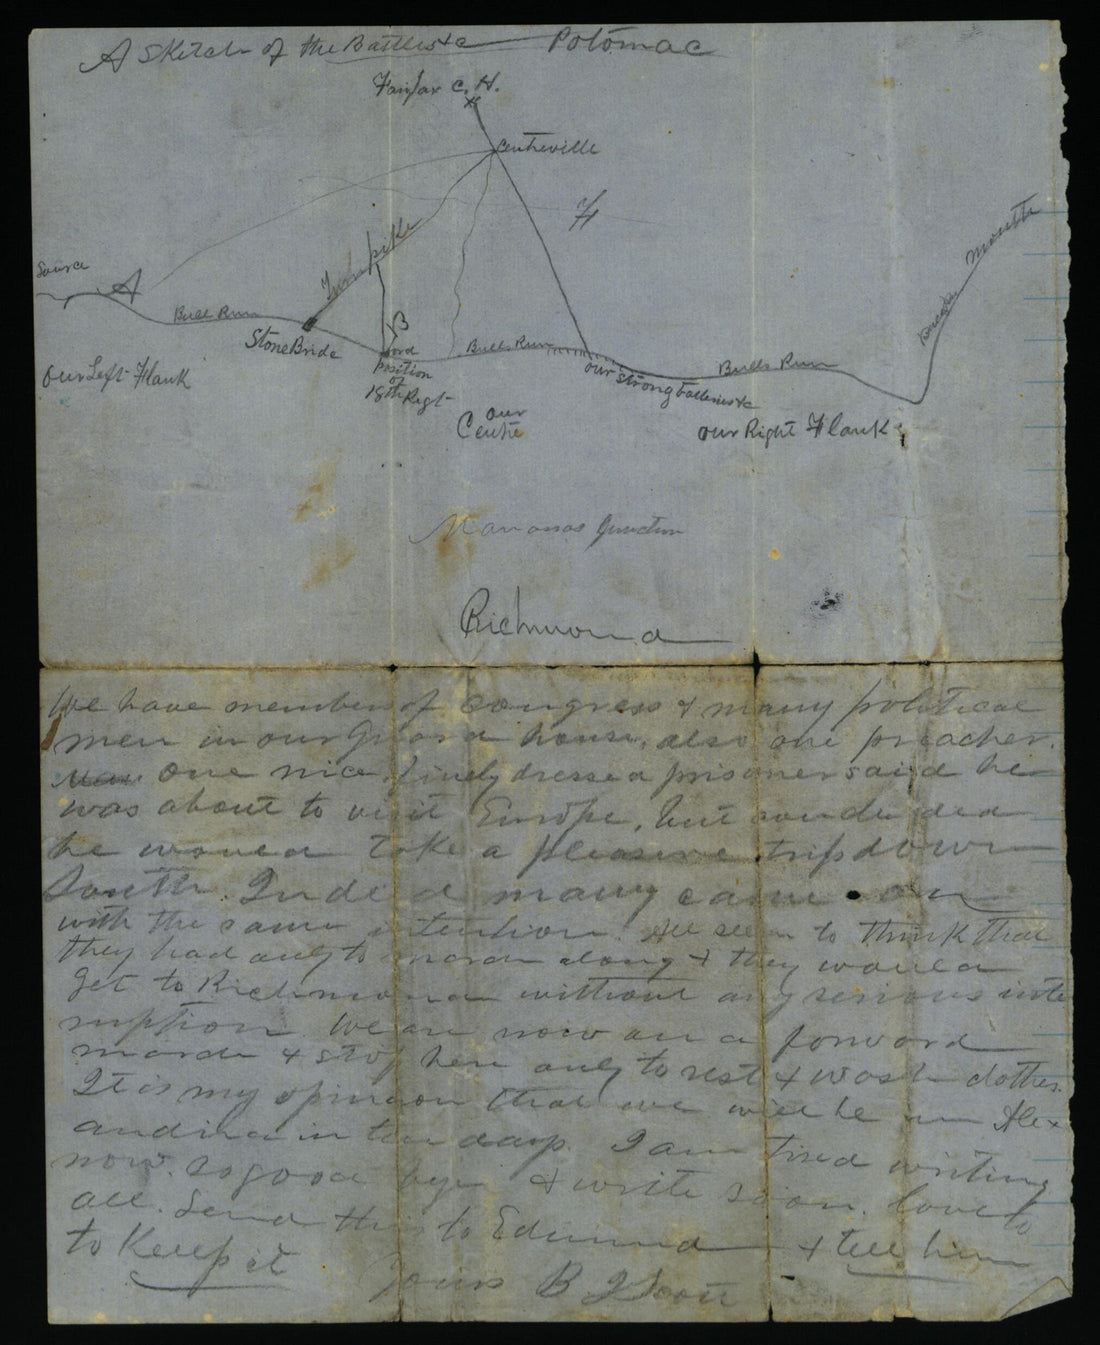 A Sketch of the Battles &c Potomac
Fairfax C. H.
Centreville
Turnpike
Source
A
Bull Run
Stone Bride
B
Ford
Position
of
18th Regt
Bulls Run
our strong batteries &c
Bulls Run
Mouth
our Left Flank
our
Centre
our Right Flank
Manassas Junction
Richmond
We have members of Congress & many political
men in our Guard house, also one preacher.
One nice, finely dressed prisoner said he
was about to visit Europe, but concluded
he would take a pleasure trip down
South. Indeed many came on
with the same intention. All seem to think that
they had only to march along & they would
get to Richmond without any serious inte
ruption. We are now on a forward
march & stop here only to rest & wash clothes.
It is my opinion that we will be in Alex
andria in ten days. I am tired writing
now. So good bye & write soon. love to
all. Send this to Edmund & tell him
to Keep it
Yours B I Scott